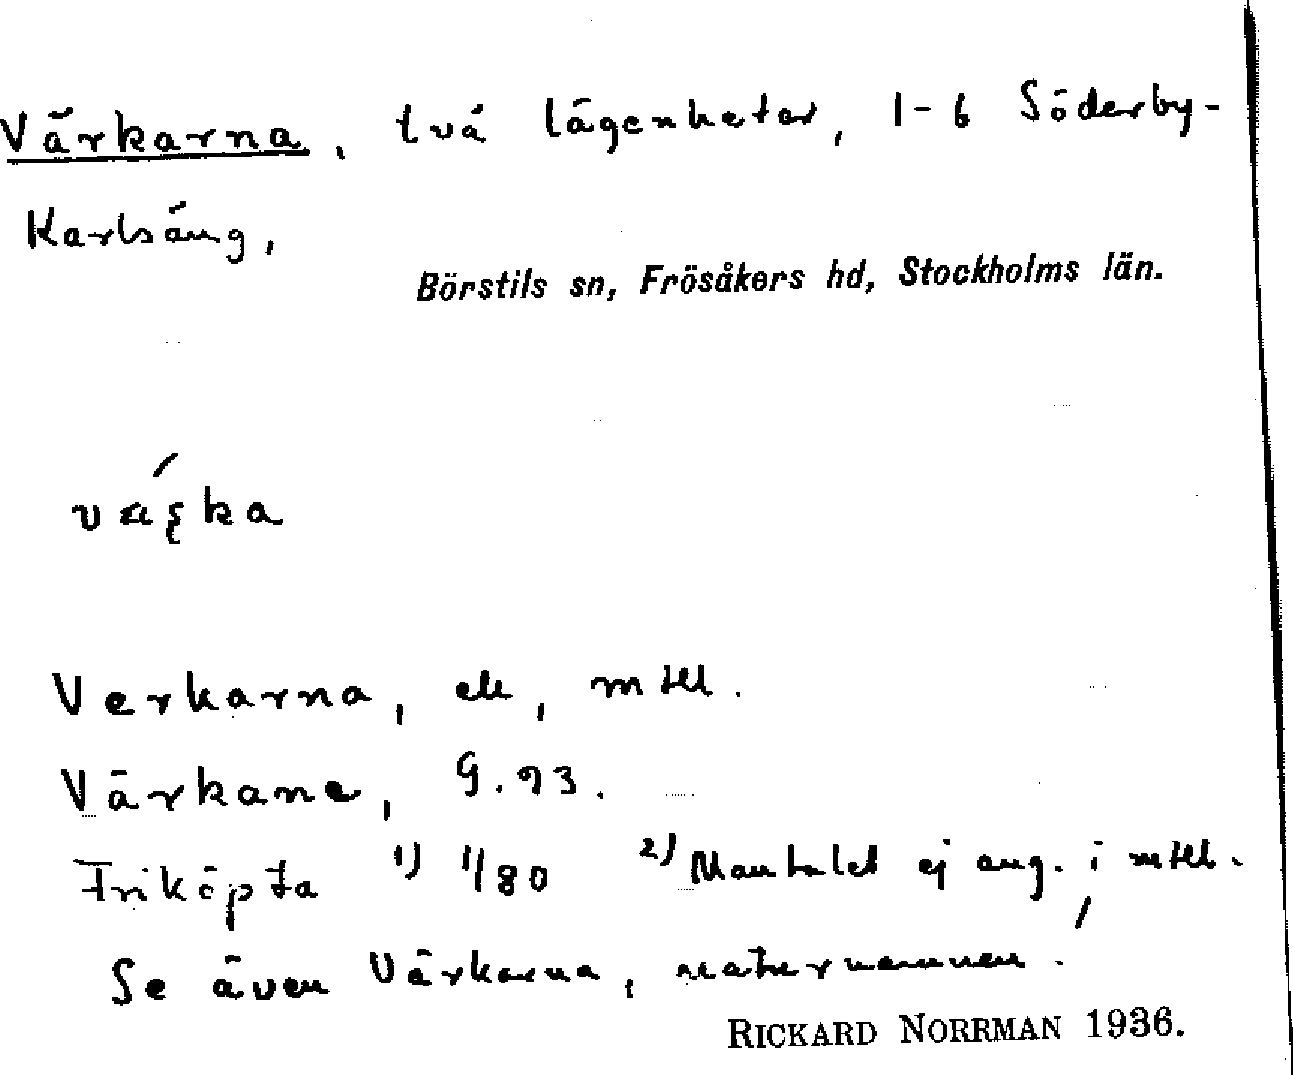 Värkarna, två lägenheter, 1-6 Söderby-
Karlsäng,
Börstils sn, Frösåkers hd, Stockholms län.
Verkarna, ek, mtll.
Värkane, G. 93.
Friköpta 1) 1/80 2) Mantalet ej ang. i mtll.
Se även Värkarna, naturnamnen.
RICKARD NORRMAN 1936.